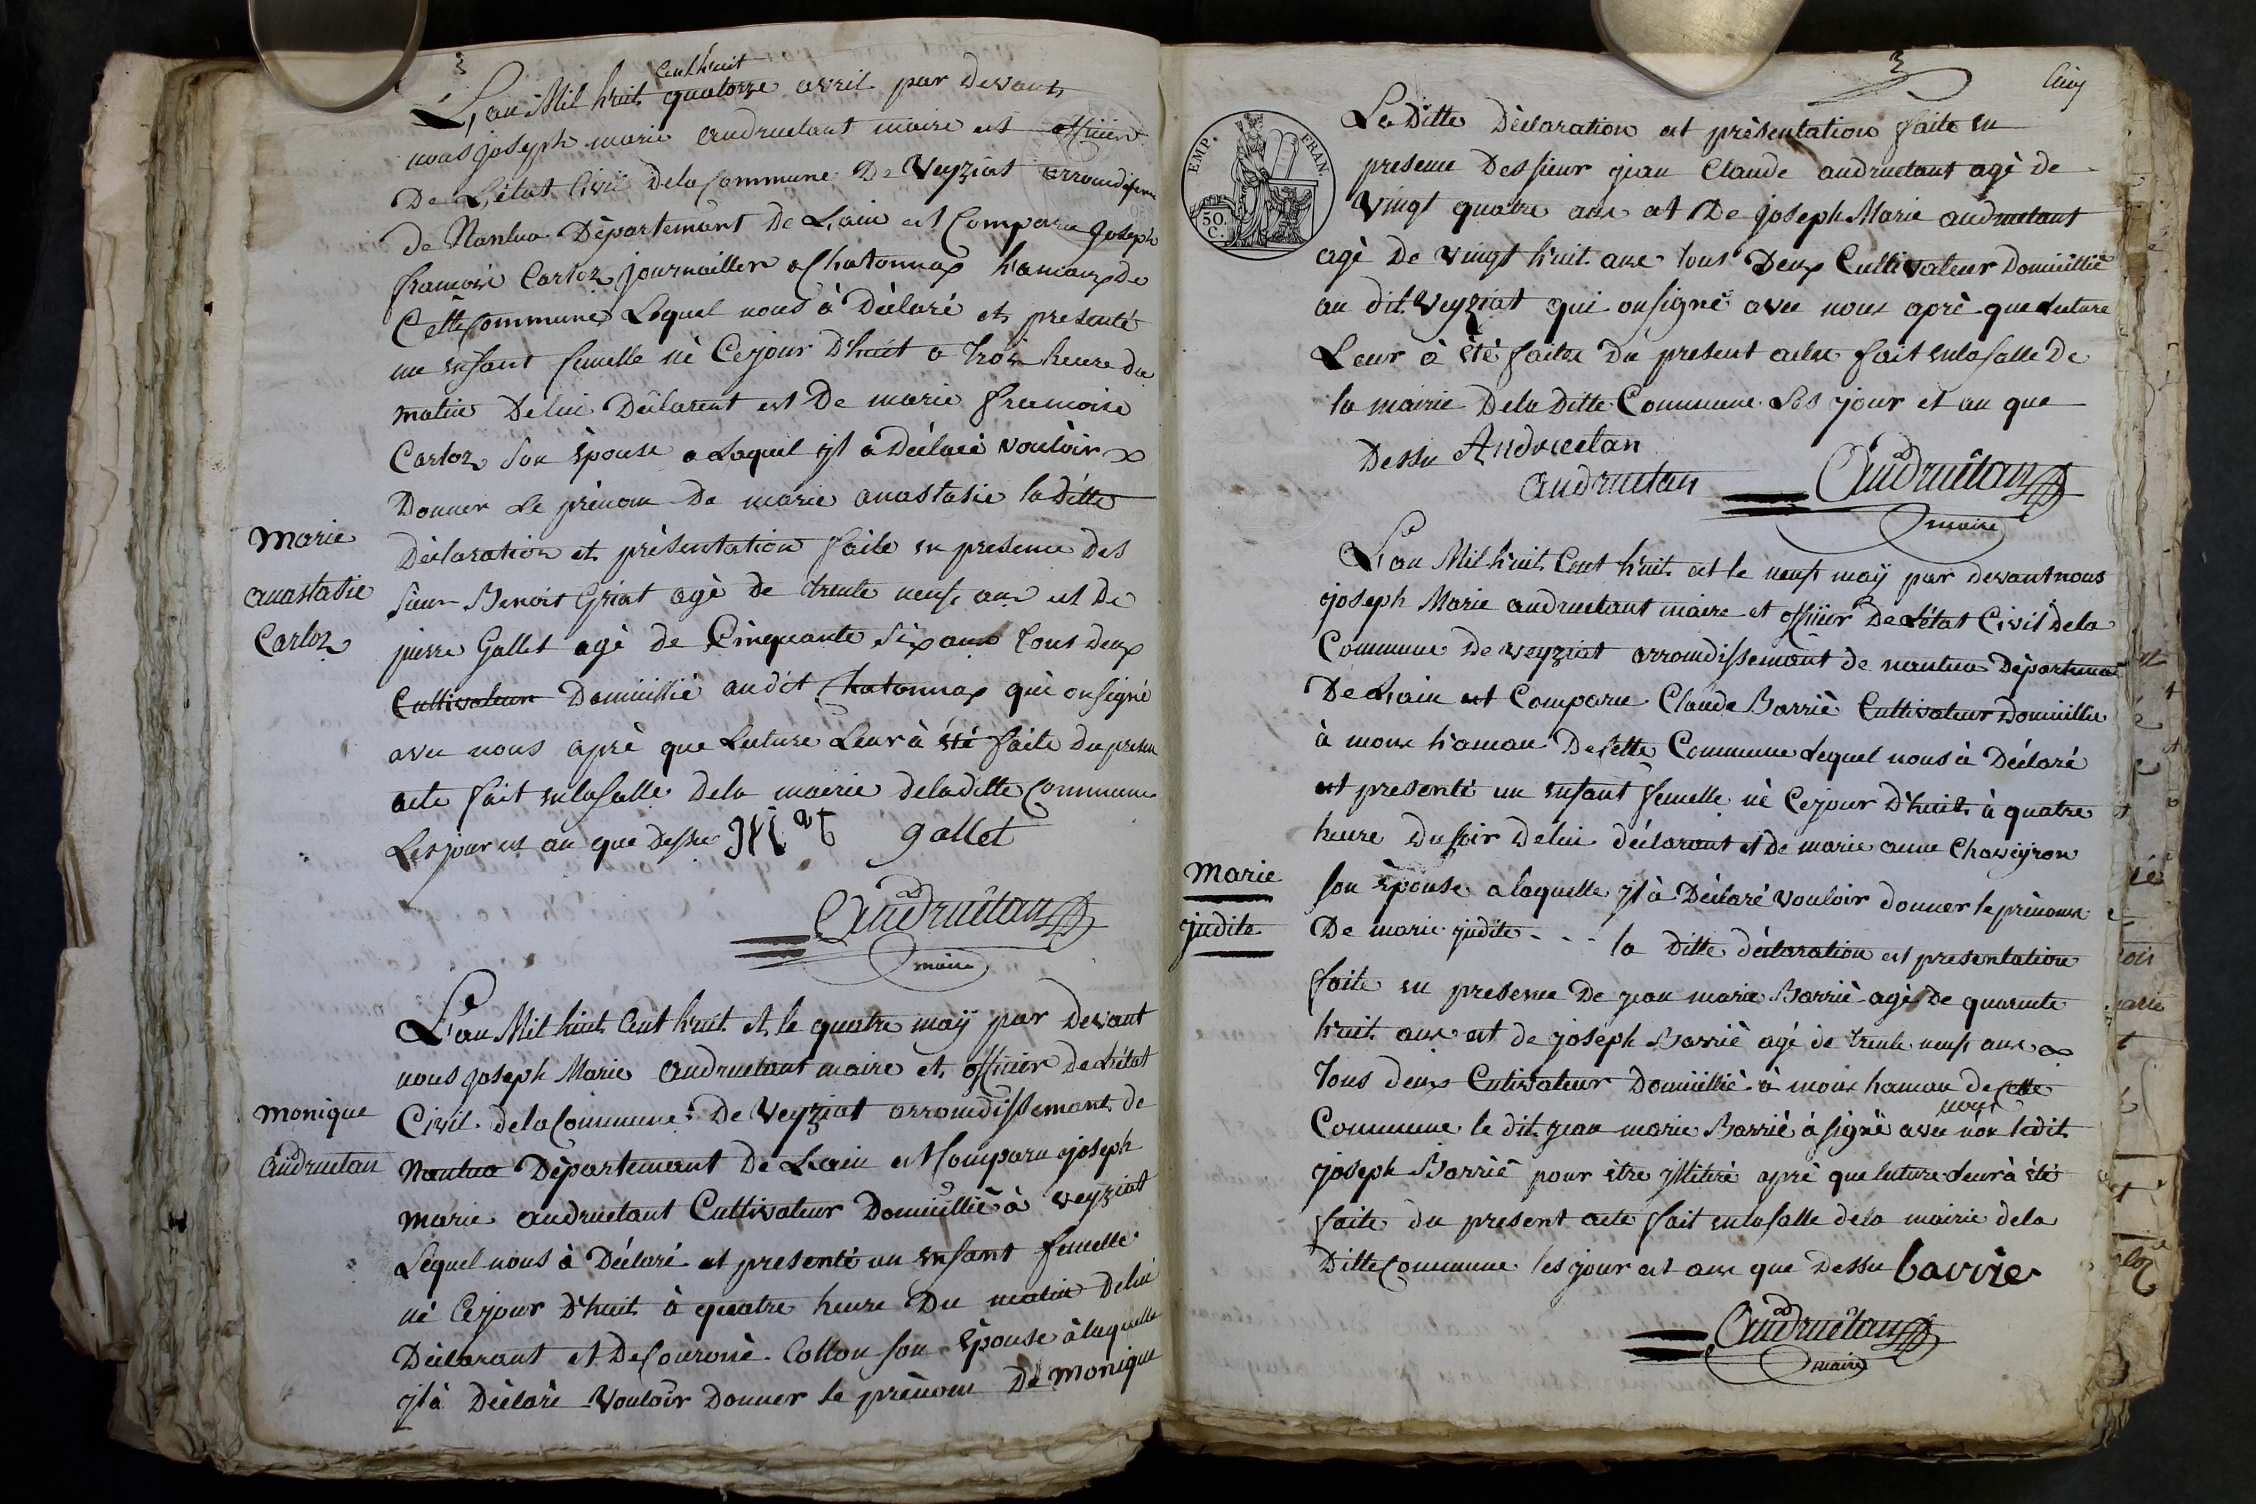 cent huit
L'an Mil huit quatorze avril par devant
nous joseph marie andruetant maire et officier
De L'état Civil dela Commune De Veyziat arrondisem
de Nantua Département De L'ain est Comparu joseph
francois Carloz journaillier a Chatonnax hamaux de
Cette Commune Lequel nous à Déclaré et presenté
un enfant femelle nè Cejour D'huit a trois heure du
matin De lui Déclarent est De marie francoise
Carloz son épouse a Laquel jl à Déclaré vouloir
Donner Le prénom De marie anastasie la ditte
Déclaration et présentation faite en presence des
Sieur Benoit Griat agè de trente neuf ans est De
pierre Gallet agè de Cinquante Six ans tous deux
Cultivateur Domicillié audit Chatonnax qui on signé
avec nous aprè que Lecture Leur à été faite du presen
acte fait en la salle dela mairie deladitte Commune
Les jour est an que dessu gallet
Marie
anastasie
Carloz
Andruétan
maire
L'an Mil huit Cent huit et le quatre maÿ par devant
nous joseph Marie andruetant maire et officier De L'état
Civil dela Commune De Veyziat arrondissemant de
Nantua Département De L'ain est Comparu joseph
marie andruetant Cultivateur Domicillié à veyziat
Lequel nous à Déclaré et presenté un enfant femelle
né Cejour D'huit à quatre heure Du matin De lui
Déclarant et De Couronè Collon son épouse à laquelle
jl à Déclaré vouloir Donner le prénom De monique
monique
andruetan
Cinq
La Ditte Déclaration est présentation faite en
presence Des sieur jean Claude andruetant agè de
Vingt quatre ans et De joseph Marie andruetant
agè De vingt huit ans tous Deux Cultivateur Domicillié
au dit Veyziat qui on signé avec nous aprè que Lecture
Leur à été faitte Du present acte fait en la salle De
la mairie Dela Ditte Commune Les jour et an que
Dessu Andruetan
andruetan Andruétan
maire
EMP. FRAN.
50. C.
L'an Mil huit Cent huit est le neuf maÿ par devant nous
joseph Marie andruetant maire et officier De L'état Civil dela
Commune De veyziat arrondissemant de nantua Départemen
De L'ain est Comparu Claude Barriè Cultivateur Domicillié
à mons hamau De Cette Commune Lequel nous à Déclaré
est presenté un enfant femelle nè Cejour D'huit à quatre
heure Du soir De lui déclarant et De marie anne Chaveyron
son Épouse a laquelle jl à Déclaré vouloir donner le prénom
De marie judite - - - la Ditte déclaration est presentation
faite en presence De jean marie Barriè agè de quarente
huit ans est de joseph Barriè agé de trente neuf ans
Tous deux Cultivateur Domicillié à mons hamau de Cette
nous
Commune le dit jean marie Barriè à signé avec non ledit
joseph Barriè pour être jlliteré aprè que lecture Leur à été
faite du present acte fait en la salle dela mairie dela
Ditte Commune les jour est ans que Dessu barrie
Marie
judite
Andruétan
maire